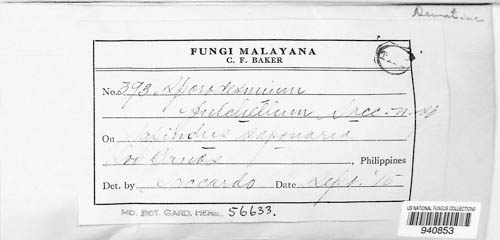 Dematiae
FUNGI MALAYANA
C. F. BAKER
No. 393 Sporodesmium
pulchellum Sacc. n. sp
On Sapindus saponaria
Los Banos, Philippines
Det. by Saccardo Date Sept. '15
MO. BOT. GARD. HERB. 56633.
US NATIONAL FUNGUS COLLECTIONS
940853